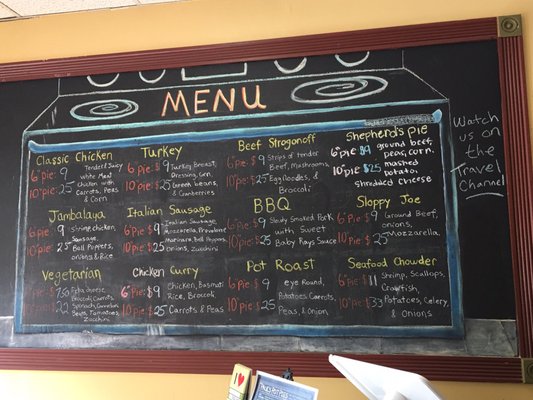 MENU
Classic Chicken
6"pie: 9 Tender Juicy
white Meat
10"pie: 25 Chicken with
Carrots, Peas
& Corn
Turkey
6 pie: $9 Turkey Breast,
Dressing, Corn,
10"pie: $25 Green beans,
& Cranberries
Beef Strogonoff
6"pie: $9 Strips of tender
Beef, Mushrooms,
10"pie: $25 Egg Noodles, &
Broccoli
Shepherd's pie
6"pie: $9 ground beef,
peas, corn,
10"pie: $25 mashed
potato
shredded cheese
Watch
us on
the
Travel
Channel
Jambalaya
6"pie: 9 Shrimp, chicken,
Sausage,
10"pie: 25 Bell Peppers,
onions, & Rice
Italian Sausage
6"pie: $9 Italian Sausage,
Mozzarella, Provolone,
Marinara, Bell Peppers,
10"pie: $25 Onions,
Zucchini
BBQ
6"pie: $9 Slowly Smoked Pork
with Sweet
10"pie: $25 Baby Rays Sauce
Sloppy Joe
6"pie: $9 Ground Beef,
onions,
10"pie: $25 Mozzarella
Vegetarian
6"pie: $7.50 Feta cheese
Broccoli, Carrots,
10"pie: $22 Spinach,
Beans, Tomatoes,
Zucchini
Chicken Curry
6"pie: $9 Chicken, Basmati
Rice, Broccoli,
10"pie: $25 Carrots & Peas
Pot Roast
6"pie: $9 Eye Round,
Potatoes, Carrots,
10"pie: $25 Peas, & Onion
Seafood Chowder
6"pie: $11 Shrimp, Scallops,
Crawfish
10"pie: $33 Potatoes, Celery,
& Onions
I